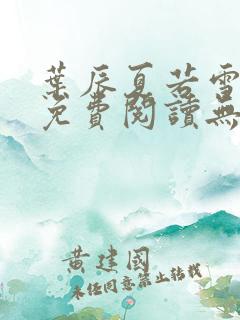 葉辰夏若雪
免費閱讀無
黃建國
未经同意禁止转载